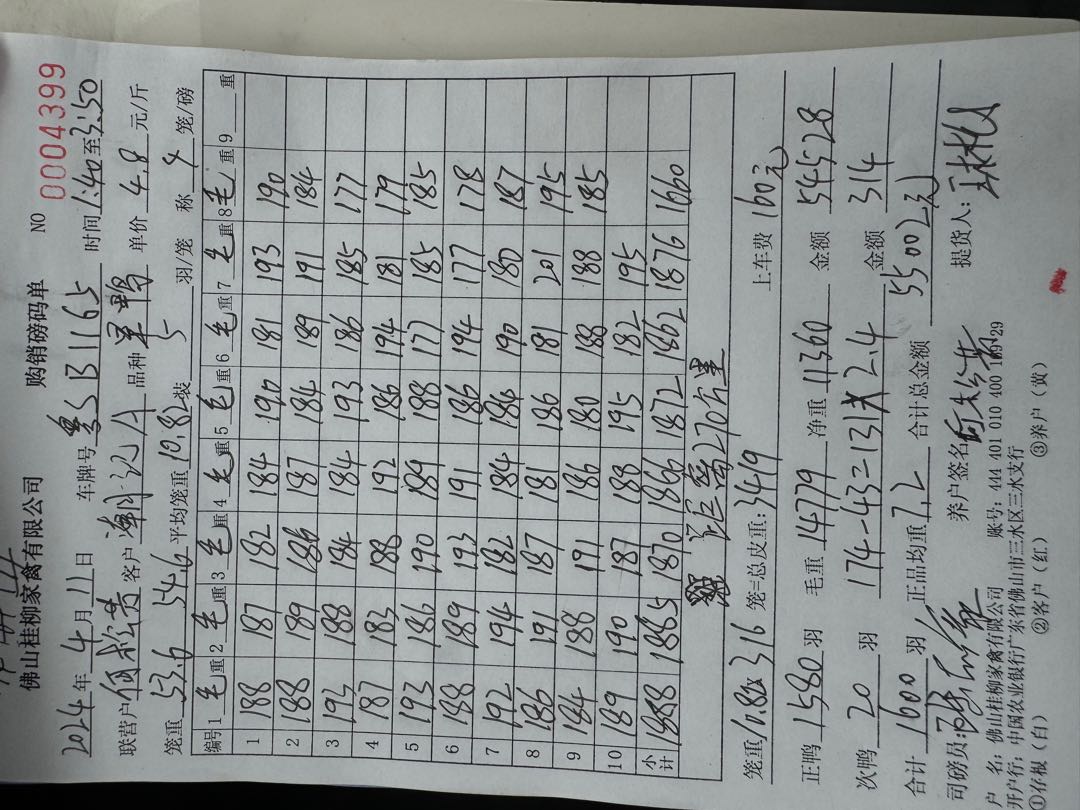 佛山桂柳家禽有限公司 购销磅码单 NO 0004399
2024年4月11日 车牌号 粤S B1165 时间 1:40至3:50
联营户 客户 品种 单价 4.8 元/斤
笼重 53.6 54.6 平均笼重 10.82 装 5 羽/笼 称 4 笼/磅
编号 1 毛重 2 毛重 3 毛重 4 毛重 5 毛重 6 毛重 7 毛重 8 毛重 9 重
1 188 187 182 184 190 181 193 190
2 188 189 186 187 184 189 191 184
3 193 188 184 184 193 186 185 177
4 187 183 188 192 186 194 181 179
5 193 186 190 189 188 177 185 185
6 188 189 193 191 186 194 177 178
7 192 194 182 184 184 190 180 187
8 186 191 187 181 186 181 201 195
9 184 188 191 186 180 188 188 185
10 189 190 187 188 195 182 195
小计 1888 1885 1870 1866 1872 1862 1876 1660
距离270公里
笼重 10.82 x 316 笼=总皮重: 3419 上车费 160元
正鸭 1580 羽 毛重 14779 净重 11360 金额 54528
次鸭 20 羽 174-43=131 x 2.4 金额 314
合计 1600 羽 正品均重 7.2 合计总金额 55002元
司磅员: 养户签名 提货人:
户 名: 佛山桂柳家禽有限公司 账号: 444 401 010 400 109 29
开户行: 中国农业银行广东省佛山市三水区三水支行
①存根(白) ②客户(红) ③养户(黄)